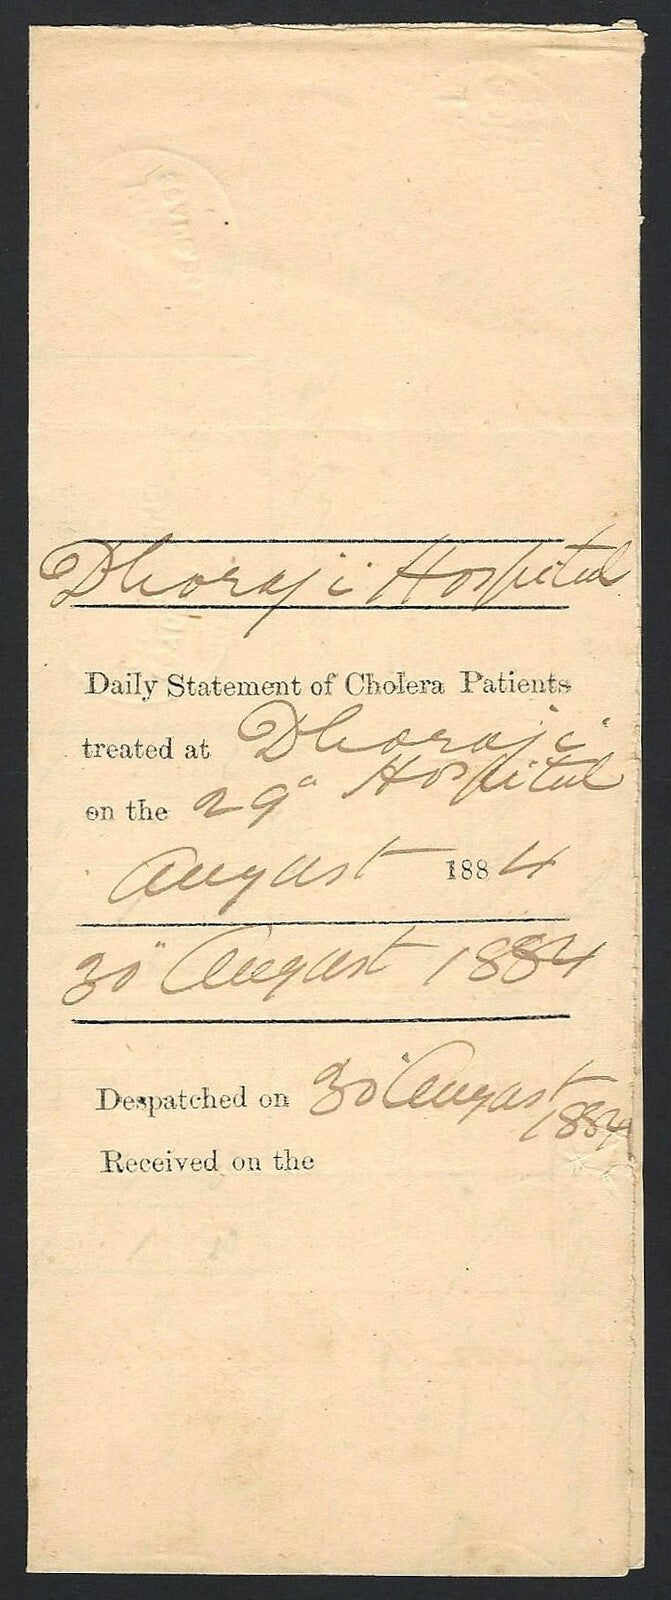 Dhoraji Hospital
Daily Statement of Cholera Patients
treated at Dhoraji
Hospital
on the 29"
August 1884
30" August 1884
Despatched on 30" August
1884
Received on the